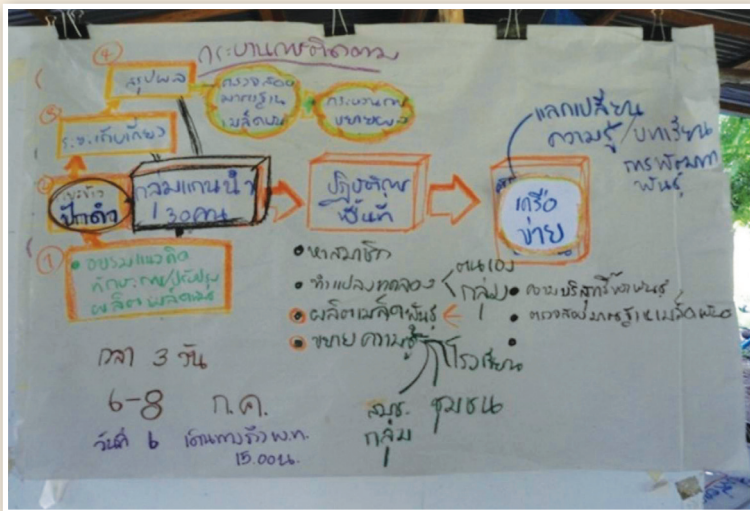 กระบวนการติดตาม
④
สรุปผล
ตรวจสอบ
มาตรฐาน
เมล็ดพันธุ์
กระบวนการ
ขยายผล
③
ระยะเก็บเกี่ยว
②
ปักดำ
กลุ่มแกนนำ
30 คน
ปฏิบัติการ
พื้นที่
เครือ
ข่าย
แลกเปลี่ยน
ความรู้/บทเรียน
การพัฒนา
พันธุ์
①
• อบรมแนวคิด
ผลิตเมล็ดพันธุ์
• หาสมาชิก
• ทำแปลงทดลอง
• ผลิตเมล็ดพันธุ์
• ขยายความรู้
ตนเอง
กลุ่ม
โรงเรียน
ชุมชน
สมช.
กลุ่ม
• ความบริสุทธิ์
• ตรวจสอบมาตรฐานเมล็ดพันธุ์
เวลา 3 วัน
6-8 ก.ค.
วันที่ 6 เดินทาง
15.00น.